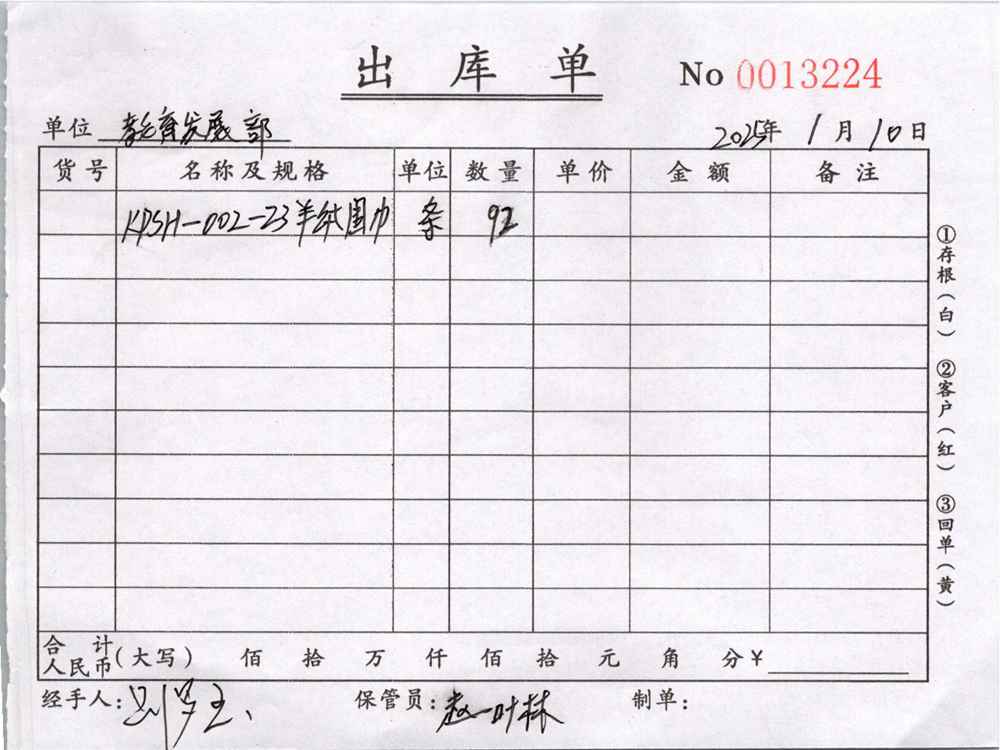 出库单 No 0013224
单位 教育发展部 2025年 1月 10日
货号 名称及规格 单位 数量 单价 金额 备注
KPSH-002-23羊绒围巾 条 92
合计人民币(大写) 佰 拾 万 仟 佰 拾 元 角 分¥
经手人: 保管员:赵一叶林 制单:
①存根(白) ②客户(红) ③回单(黄)